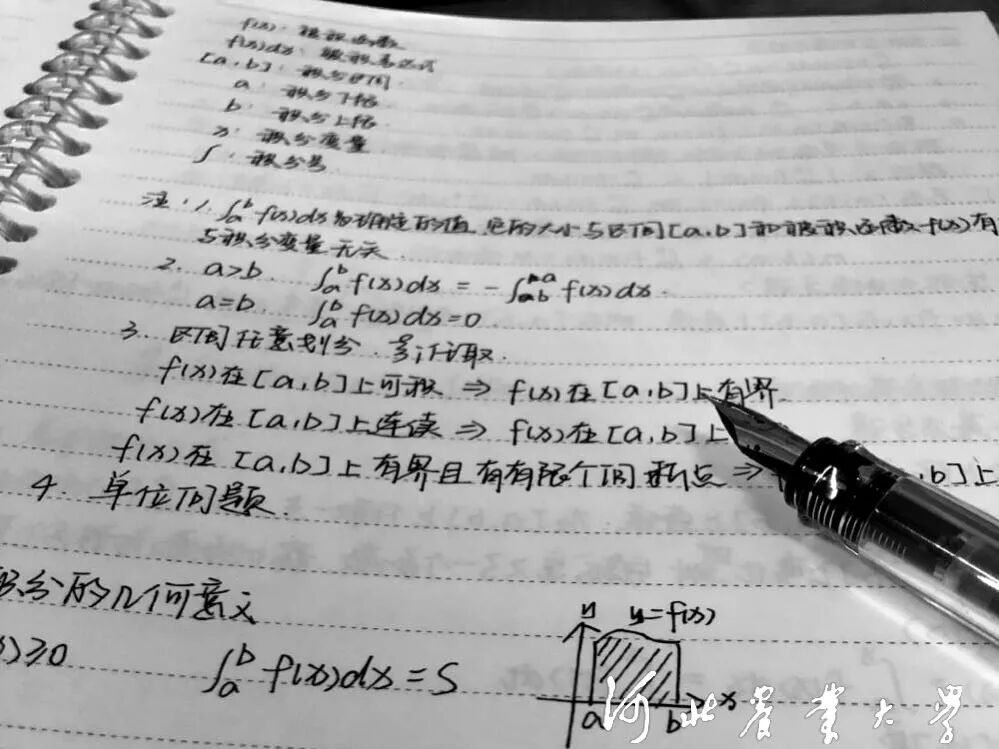 f(x): 被积函数
f(x)dx: 被积表达式
[a,b]: 积分区间
a: 积分下限
b: 积分上限
x: 积分变量
∫: 积分号
注: 1. ∫_a^b f(x)dx为确定的值 它的大小与区间[a,b]和被积函数f(x)有
与积分变量无关
2. a>b ∫_a^b f(x)dx = -∫_b^a f(x)dx.
a=b. ∫_a^b f(x)dx=0
3. 区间任意划分. ξi任取.
f(x)在[a,b]上可积 ⇒ f(x)在[a,b]上有界
f(x)在[a,b]上连续 ⇒ f(x)在[a,b]上
f(x)在[a,b]上有界且有有限个间断点 ⇒ ,b]上
4. 单位问题
积分的几何意义
)≥0 ∫_a^b f(x)dx=S
y y=f(x)
a b x
河北农业大学